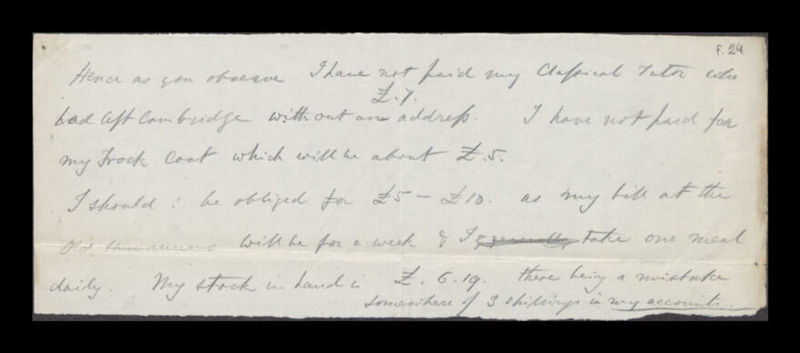 F. 24
Hence as you observe I have not paid my Classical Tutor who
£.7.
had left Cambridge without an address. I have not paid for
my Frock Coat which will be about £.5.
I should : be obliged for £5 – £10. as my bill at the
Old Hummums will be for a week & I generally take one meal
daily. My stock in hand is £. 6. 19. there being a mistake
somewhere of 3 shillings in my accounts.